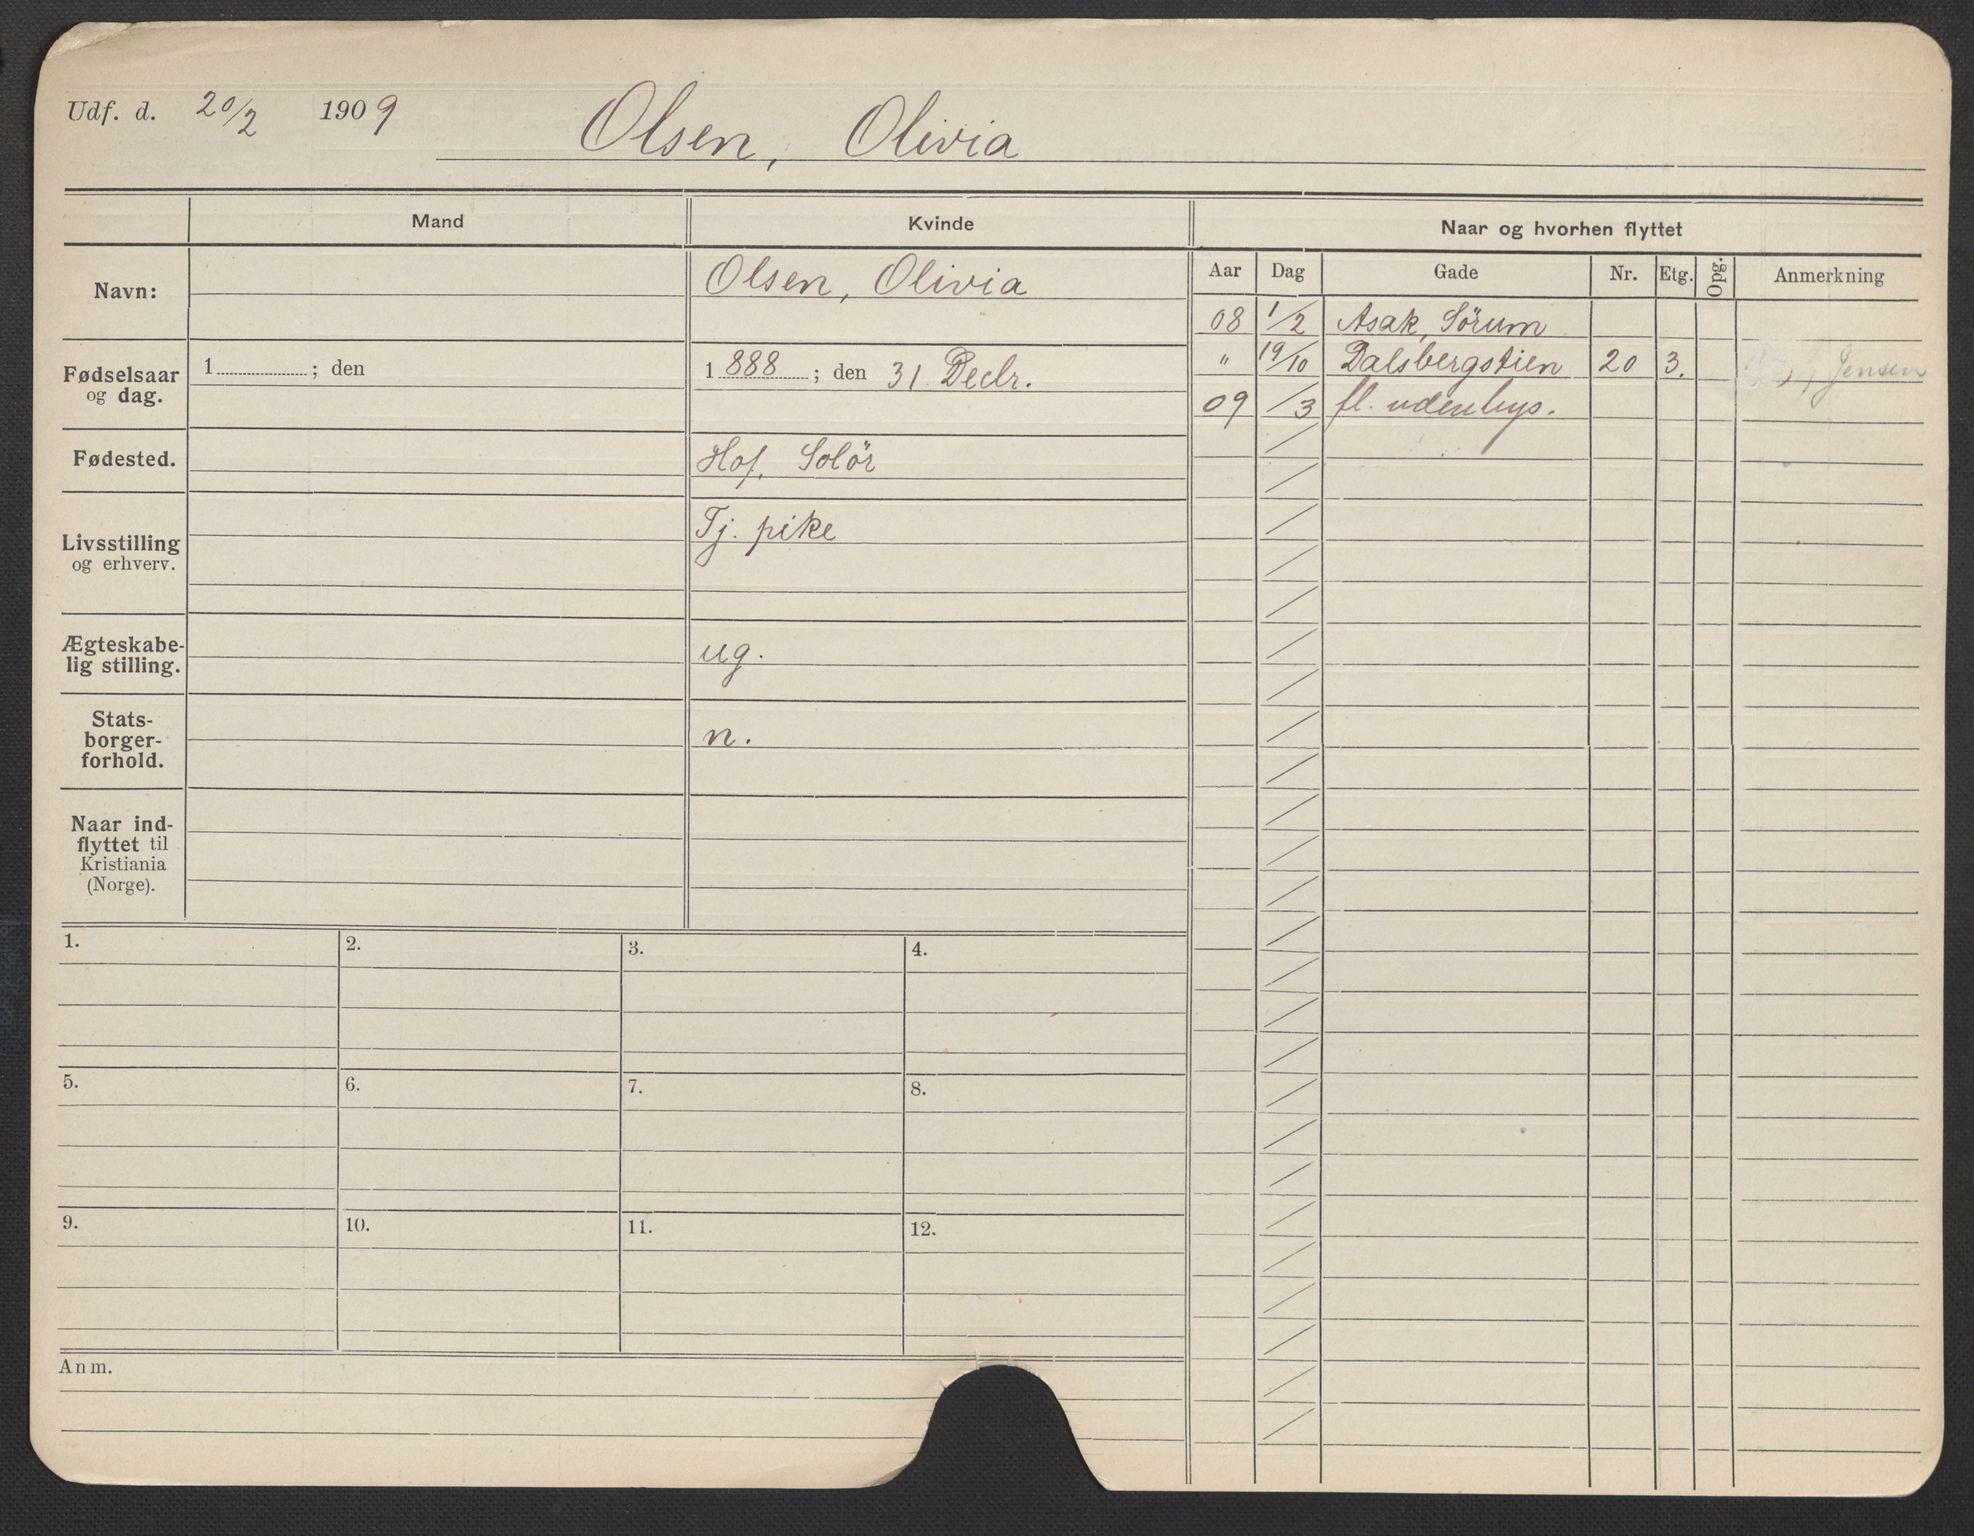 Udf. d. 20/2 1909 Olsen, Olivia
Mand Kvinde Naar og hvorhen flyttet
Navn: Olsen, Olivia
Aar Dag Gade Nr. Etg. Opg. Anmerkning
08 1/2 Asak, Sörum
Fødselsaar og dag. 1 ; den 1888 ; den 31 Decbr.
" 19/10 Dalsbergstien 20 3. Jensen
09 /3 fl. udenbys.
Fødested. Hof, Solör
Livsstilling og erhverv. Tj. pike
Ægteskabe-
lig stilling. ug.
Stats-
borger-
forhold. n.
Naar ind-
flyttet til
Kristiania
(Norge).
1. 2. 3. 4.
5. 6. 7. 8.
9. 10. 11. 12.
Anm.